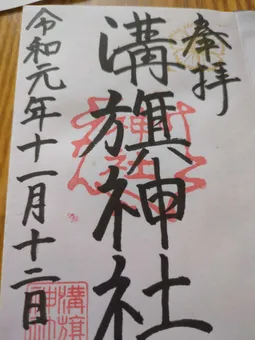 奉拝
溝旗神社
令和元年十一月十二日
溝旗
神社